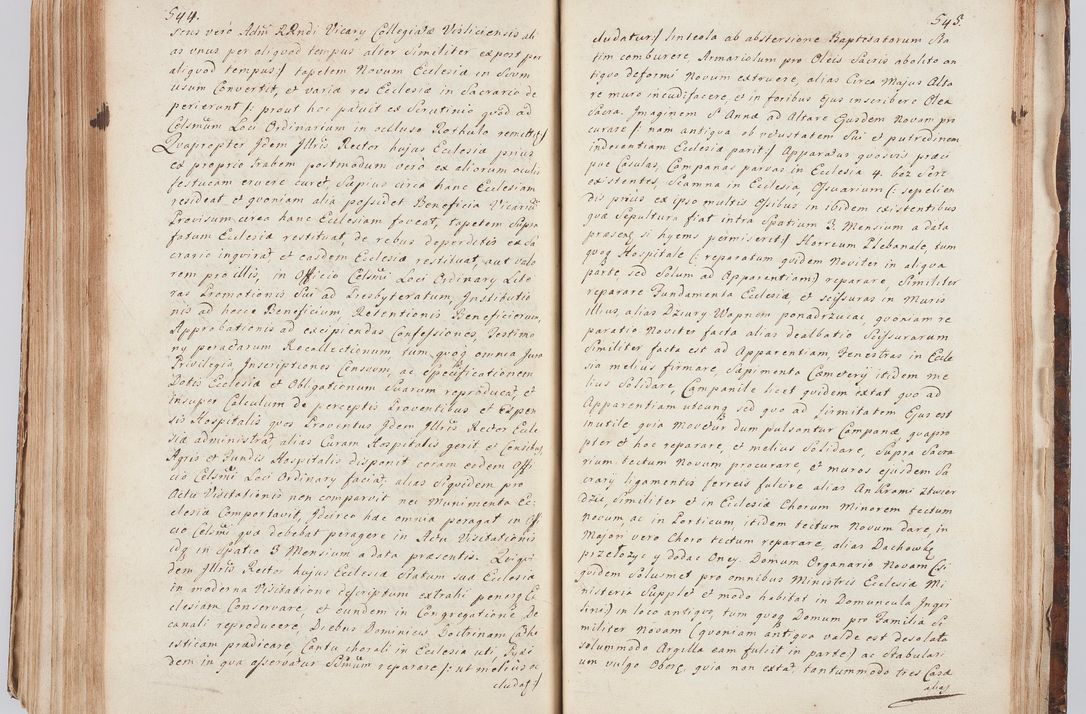 544.
sens verò Adm̃ RRndi Vicary Collegiatæ Visliciensis ali
as vnus per aliquod tempus alter similiter ex post per
aliquod tempus :/ tapetem Novum Ecclesiæ in Suum
usum Convertit, et variæ res Ecclesiæ in Sacrario de
perierunt /: prout hoc patuit ex Scrutinio quod ad
Celsm̃um Loci Ordinarium in occluso Rothulo remitt
Quapropter Idem Jllris Rector hujus Ecclesiæ prius
ex proprio trabem postmodum verò ex aliorum oculis
festucam eruere curet, Sæpius circa hanc Ecclesiam
resideat, et quoniam alia possidet Beneficia Vicariũ
Provisum circa hanc Ecclesiam foveat, tapetem Supra
fatum Ecclesiæ restituat, de rebus deperditis ex Sa
crario inquirat et easdem Ecclesiæ restituat, aut valo
rem pro illis, in Officio Celsm̃i Loci Ordinary Lite
ras Promotionis Sui ad Presbyteratum, Institutio
nis ad hocce Beneficium, Retentionis Beneficiorum,
Approbationis ad excipiendas Confessiones, Testimo
ny peradarum Recollectionum tum quoq omnia Jura
Privilegia Inscriptiones Censuum, ac Specificationem
Dotis Ecclesiæ et Obligationum Suarum reproducat, et
insuper Calculum de perceptis Proventibus et Expen
sis Hospitalis quos Proventus Idem Jllris Rector Eccle
siæ administrat alias Curam Hospitalis gerit et Censibus
Agris et Fundis Hospitalis disponit coram eodem Offi
cio Celsm̃i Loci Ordinary faciat, alias Siquidem pro
Actu Visitationis non comparvit nec Munimenta Ec
clesiæ Comportavit, Idcirco hæc omnia peragat in Off
cio Celsm̃i quæ debebat peragere in Actu Visitationis
idq in Spatio 3 Mensium a data præsentis. Reliqui
dem Jllris Rector hujus Ecclesiæ Statum suæ Ecclesiæ
in moderna Visitatione descriptum extrahi penes Ec
clesiam Conservare, et eundem in Congregatione De
canali reproducere, Diebus Dominicis Doctrinam Cathe
isticam prædicare, Cantu chorali in Ecclesia uti, Pixi
dem in qua asservatur Ssm̃um reparare /: ut melius c
cludat :/
545.
cludatur :/ linteola ab abstersione Baptisatorum Sta
tim comburere, Armariolum pro Oleis Sacris abolito an
tiquo deformi Novum extruere, alias Circa Majus Alta
re muro incudifacere, et in foribus Ejus inscribere Olea
Sacra. Imaginem S. Annæ ad Altare Ejusdem Novam pro
curare /: nam antiqua ob vetustatem Sui et putredinem
indecentiam Ecclesiæ parit :/ Apparatus quosvis præci
pue Casulas, Campanas parvas in Ecclesia 4. bez Serc
existentes, Scamna in Ecclesia, Ossuarium (: sepelien
dis prius ex ipso multis Ossibus in ibidem existentibus
quæ Sepultura fiat intra Spatium 3. Mensium a data
præsent, si hyems permiserit :/ Horreum Plebanale, tum
quoq Hospitale (: reparatum quidem Noviter in aliqua
parte sed Solum ad Apparentiam) reparare, Similiter
reparare Fundamenta Ecclesiæ, et scissuras in Muris
illius, alias Dziury Wapnem ponadrzucac, quoniam re
paratio Noviter facta alias dealbatio Scissurarum
Similiter facta est ad Apparentiam, Fenestras in Eccle
sia melius firmare, Sapimenta Cæmeterÿ itidem me
lius Solidare, Campanile licet quidem extat quo ad
Apparentiam utcunq sed quo ad firmitatem Ejus est
inutile quia Movetur dum pulsantur Campanæ, quapro
pter et hoc reparare, et melius Solidare, Supra Sacra
rium tectum Novum procurare, et muros ejusdem Sa
crary ligamentis ferreis fulcire alias Ankrami ztwier
dzic, Similiter et in Ecclesiæ Chorum Minorem tectum
novum, ac in Porticum itidem tectum Novum dare, in
Majori vero Choro tectum reparare, alias Dachowkę
przełozyc y dodac Oney. Domum Organario Novam (si
quidem Solusmet pro omnibus Ministris Ecclesiæ Mi
nisteria Supplet et modo habitat in Domuncula Inqui
lini) in loco antiquo, tum quoq Domum pro Familia Si
militer Novam (quoniam antiqua valde est desolata
solummodo Argilla eam fulcit in parte) ac Stabulari
um vulgo Oborę, quia non extat tantummodo tres Casæ
alias